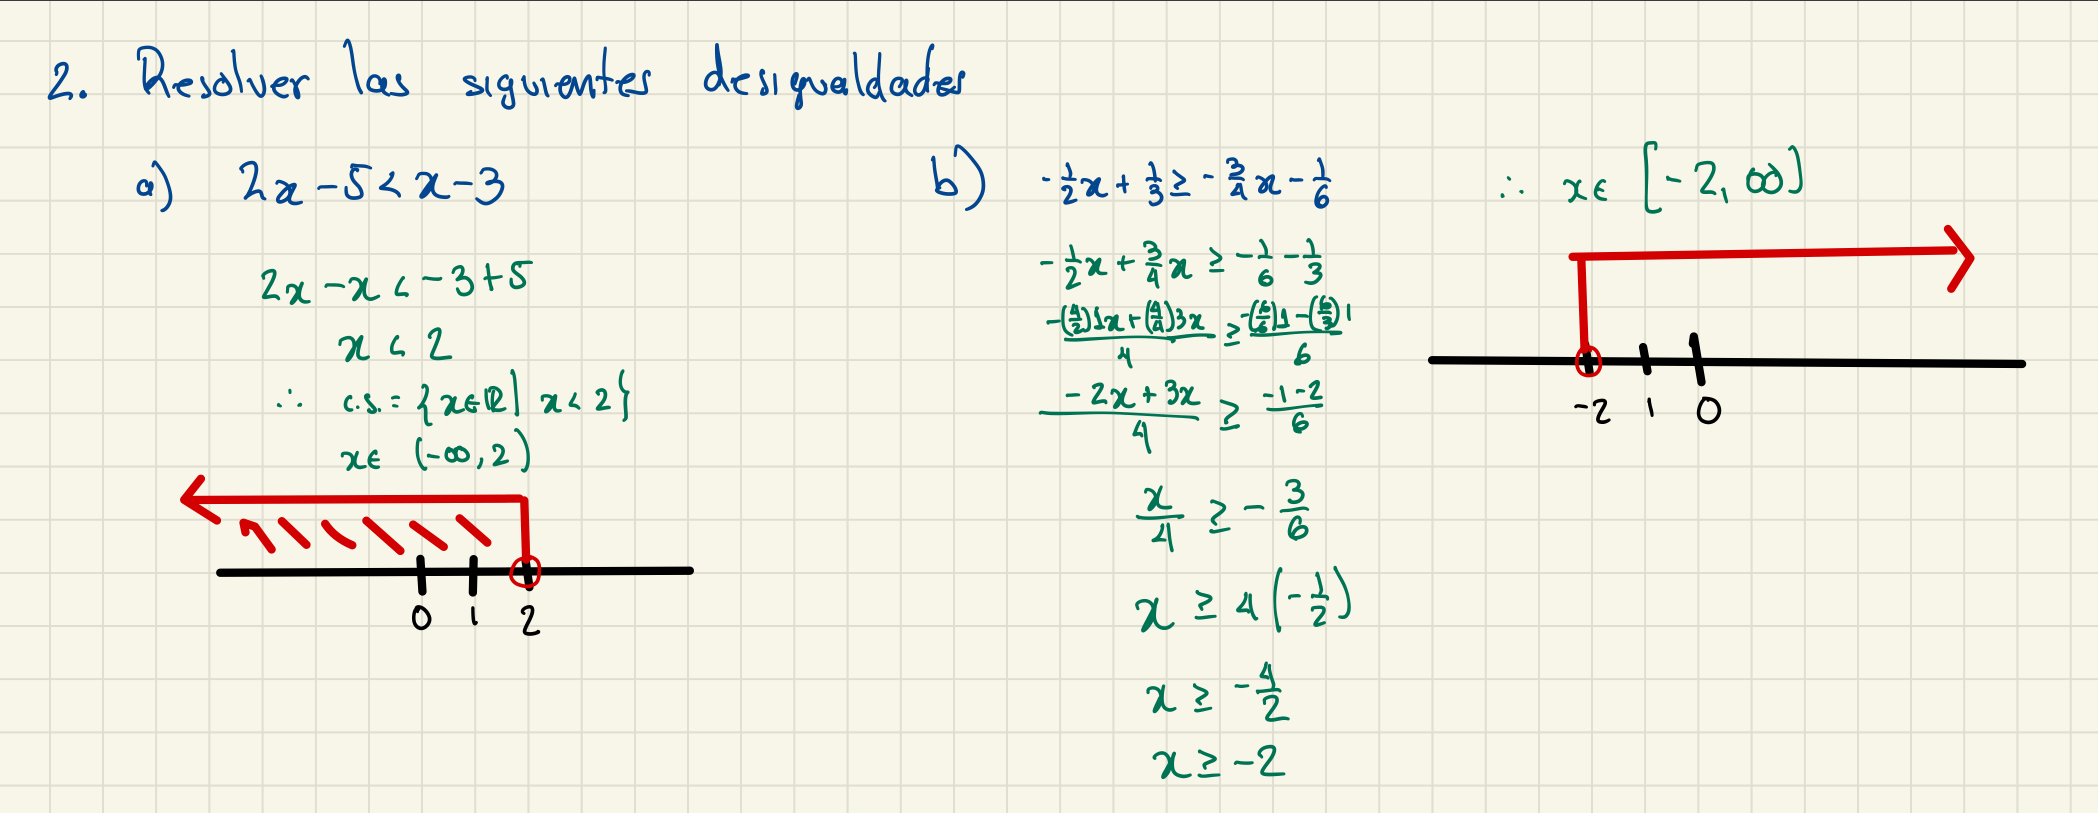 2. Resolver las siguientes desigualdades
a) 2x - 5 < x - 3
2x - x < -3 + 5
x < 2
∴ c.s. = {x ∈ ℝ | x < 2}
x ∈ (-∞, 2)
0 1 2
b) -1/2 x + 1/3 ≥ -3/4 x - 1/6
-1/2 x + 3/4 x ≥ -1/6 - 1/3
(-(4/2)1x + (4/4)3x)/4 ≥ (-(6/6)1 - (6/3)1)/6
(-2x + 3x)/4 ≥ (-1-2)/6
x/4 ≥ -3/6
x ≥ 4(-1/2)
x ≥ -4/2
x ≥ -2
∴ x ∈ [-2, ∞)
-2 1 0